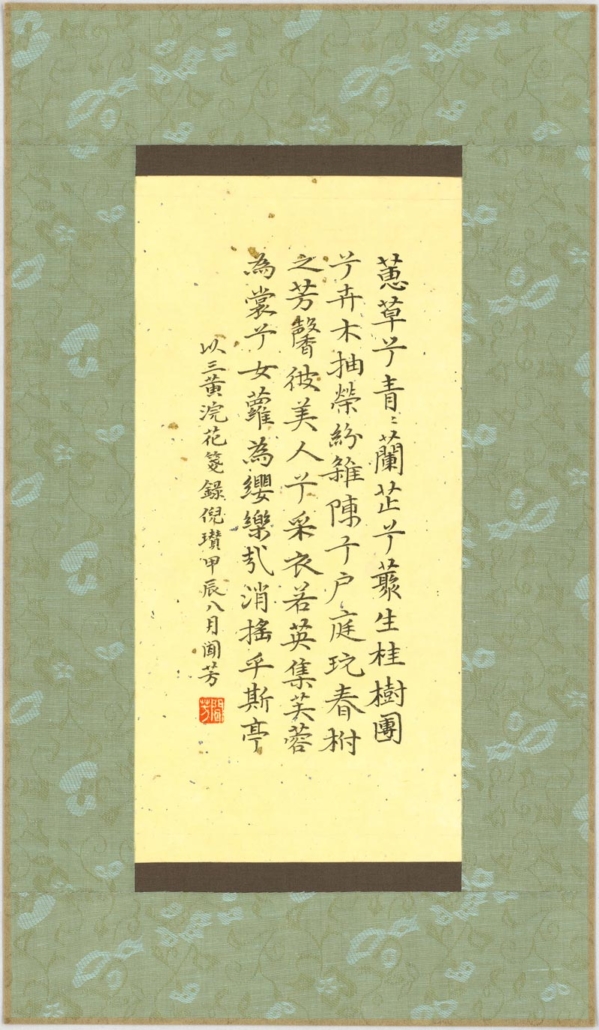 蕙草兮青〻蘭芷兮藂生桂樹團
兮卉木抽榮紛雜陳于户庭玩春柎
之芳馨彼美人兮采衣若英集芙蓉
為裳兮女蘿為纓樂哉消搖乎斯亭
以三黄浣花箋錄倪瓚甲辰八月聞芳
聞芳